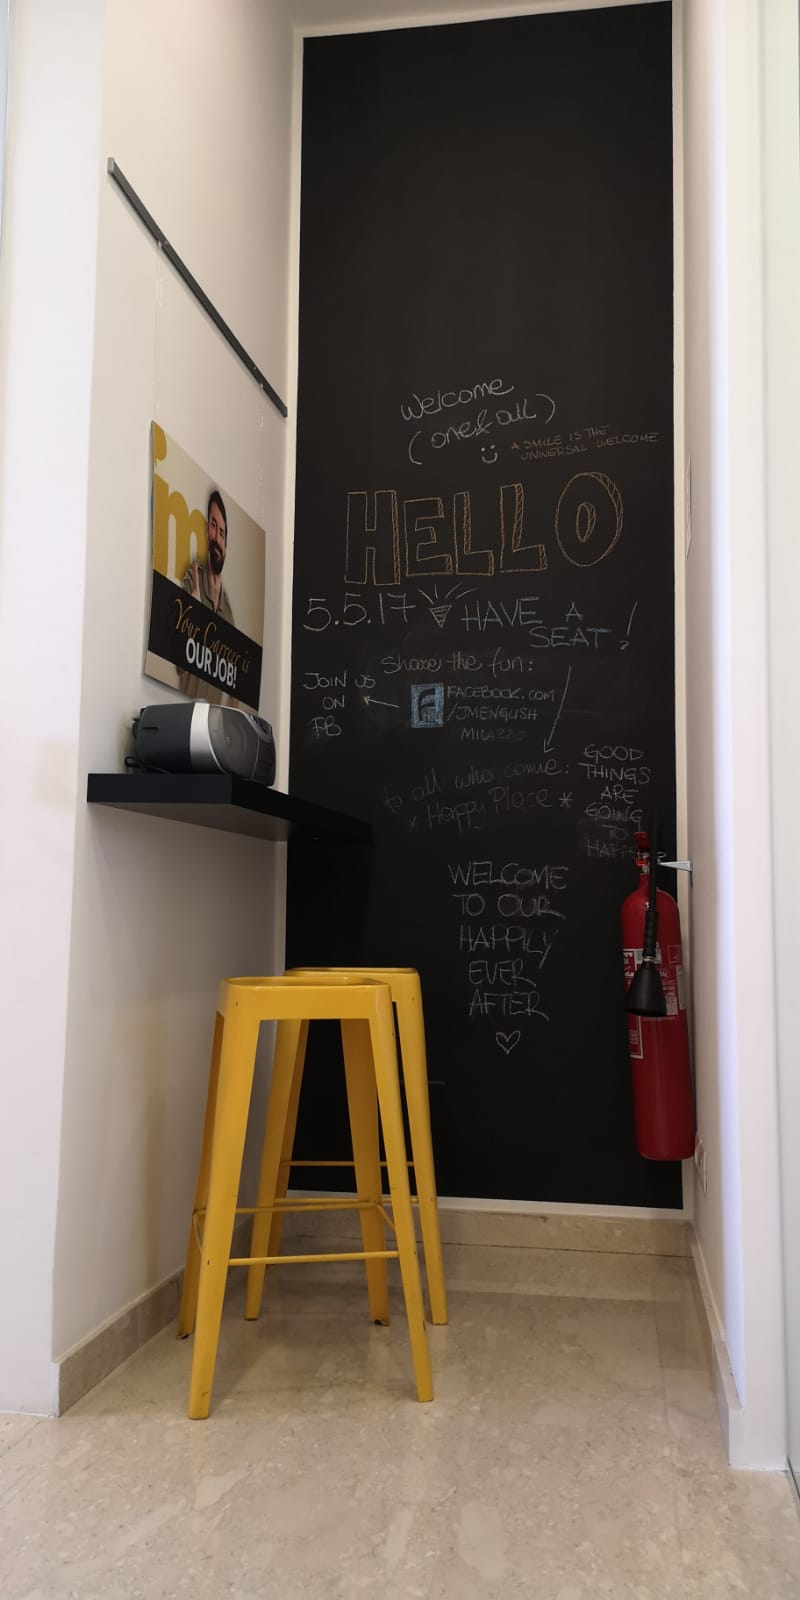 Welcome
(one & all)
A SMILE IS THE
UNIVERSAL WELCOME
HELLO
5.5.17
HAVE A
SEAT!
Share the fun:
JOIN US
ON
FB
FACEBOOK.COM
/JMENGLISH
MILAZZO
to all who come:
* Happy Place *
GOOD
THINGS
ARE
GOING
TO
HAPPEN
WELCOME
TO OUR
HAPPILY
EVER
AFTER
jm
Your Career is
OUR JOB!